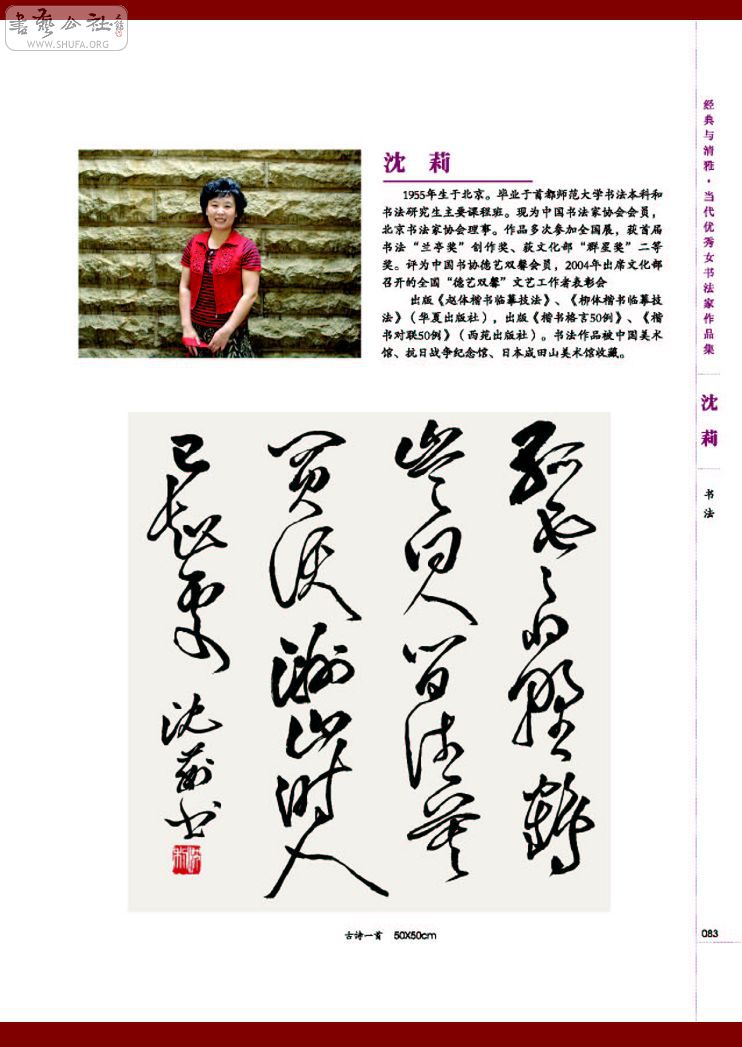 書藝公社
WWW.SHUFA.ORG
经典与清雅·当代优秀女书法家作品集
沈莉
书法
沈 莉
1955年生于北京。毕业于首都师范大学书法本科和
书法研究生主要课程班。现为中国书法家协会会员，
北京书法家协会理事。作品多次参加全国展，获首届
书法“兰亭奖”创作奖、获文化部“群星奖”二等
奖。评为中国书协德艺双馨会员，2004年出席文化部
召开的全国“德艺双馨”文艺工作者表彰会
出版《赵体楷书临摹技法》、《柳体楷书临摹技
法》（华夏出版社），出版《楷书格言50例》、《楷
书对联50例》（西苑出版社）。书法作品被中国美术
馆、抗日战争纪念馆、日本成田山美术馆收藏。
孤雲將野鶴
豈向人間住莫
買沃洲山時人
已知處
沈莉书
古诗一首 50X50cm
083